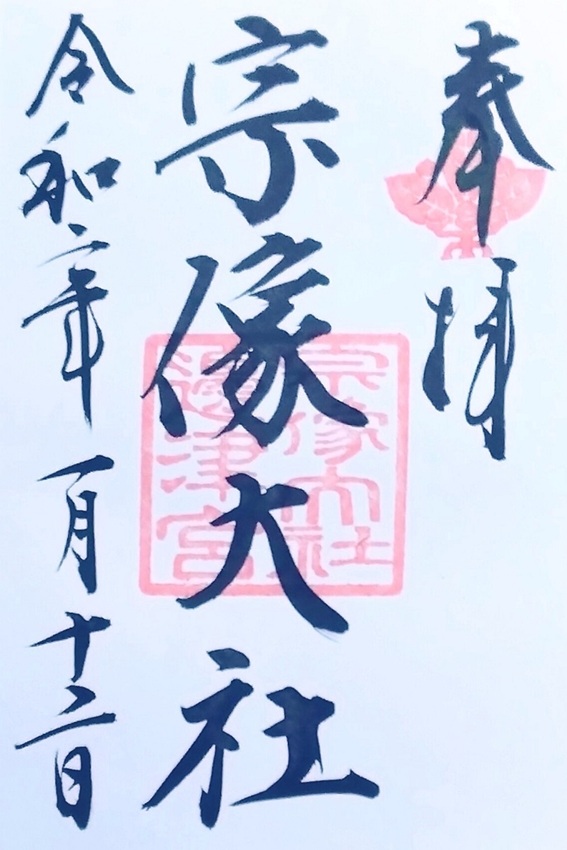 奉拝
宗像大社
令和二年一月十二日
宗像大社
邊津宮